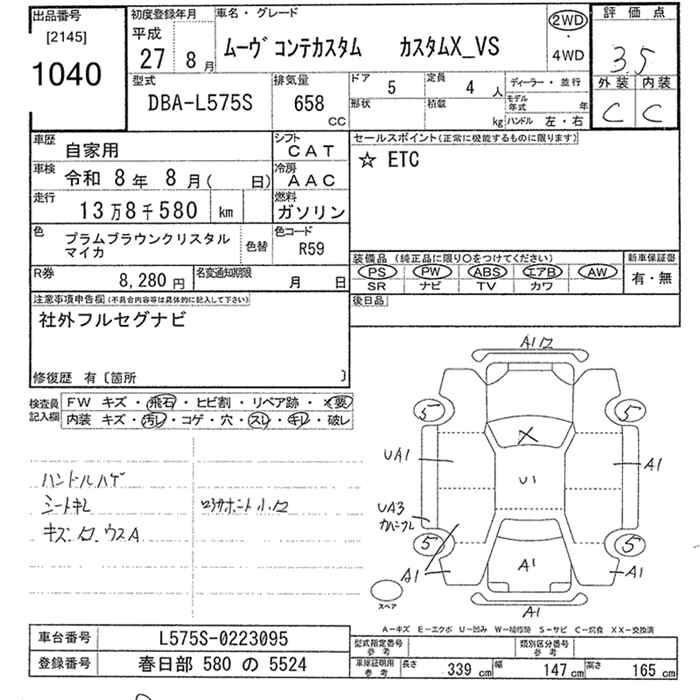 出品番号
[2145]
1040
初度登録年月
平成
27
8月
車名・グレード
ムーヴ コンテカスタム カスタムX_VS
2WD
・
4WD
評価点
3.5
外装 内装
C C
型式
DBA-L575S
排気量
658
CC
ドア 5
定員 4人
ディーラー・並行
形状
積載
kg
モデル年式 年
ハンドル 左・右
車歴 自家用
シフト CAT
車検 令和 8年 8月( 日)
冷房 AAC
走行 13万8千580 km
燃料 ガソリン
色 プラムブラウンクリスタル
マイカ
色替
色コード R59
R券 8,280円
名変通知期限 月 日
セールスポイント(正常に機能するものに限ります)
☆ ETC
装備品 (純正品に限り○をつけてください)
新車保証書
PS PW ABS エアB AW
SR ナビ TV カワ
有・無
後日品
注意事項申告欄(不具合内容等は具体的に記入して下さい)
社外フルセグナビ
修復歴 有〔箇所 〕
検査員
記入欄
FW キズ・飛石・ヒビ割・リペア跡・X要
内装 キズ・汚レ・コゲ・穴・スレ・キレ・破レ
ハンドルハゲ
シートキレ
A1
5 5
X
UA1
U1
A1
UA3
5 5
A1
A1
A1
A1
スペア
A-キズ E-エクボ U-凹み W-補修跡 S-サビ C-腐食 XX-交換済
車台番号 L575S-0223095
登録番号 春日部 580 の 5524
型式指定番号
参考
類別区分番号
参考
車庫証明用
参考
長さ 339 cm
幅 147 cm
高さ 165 cm